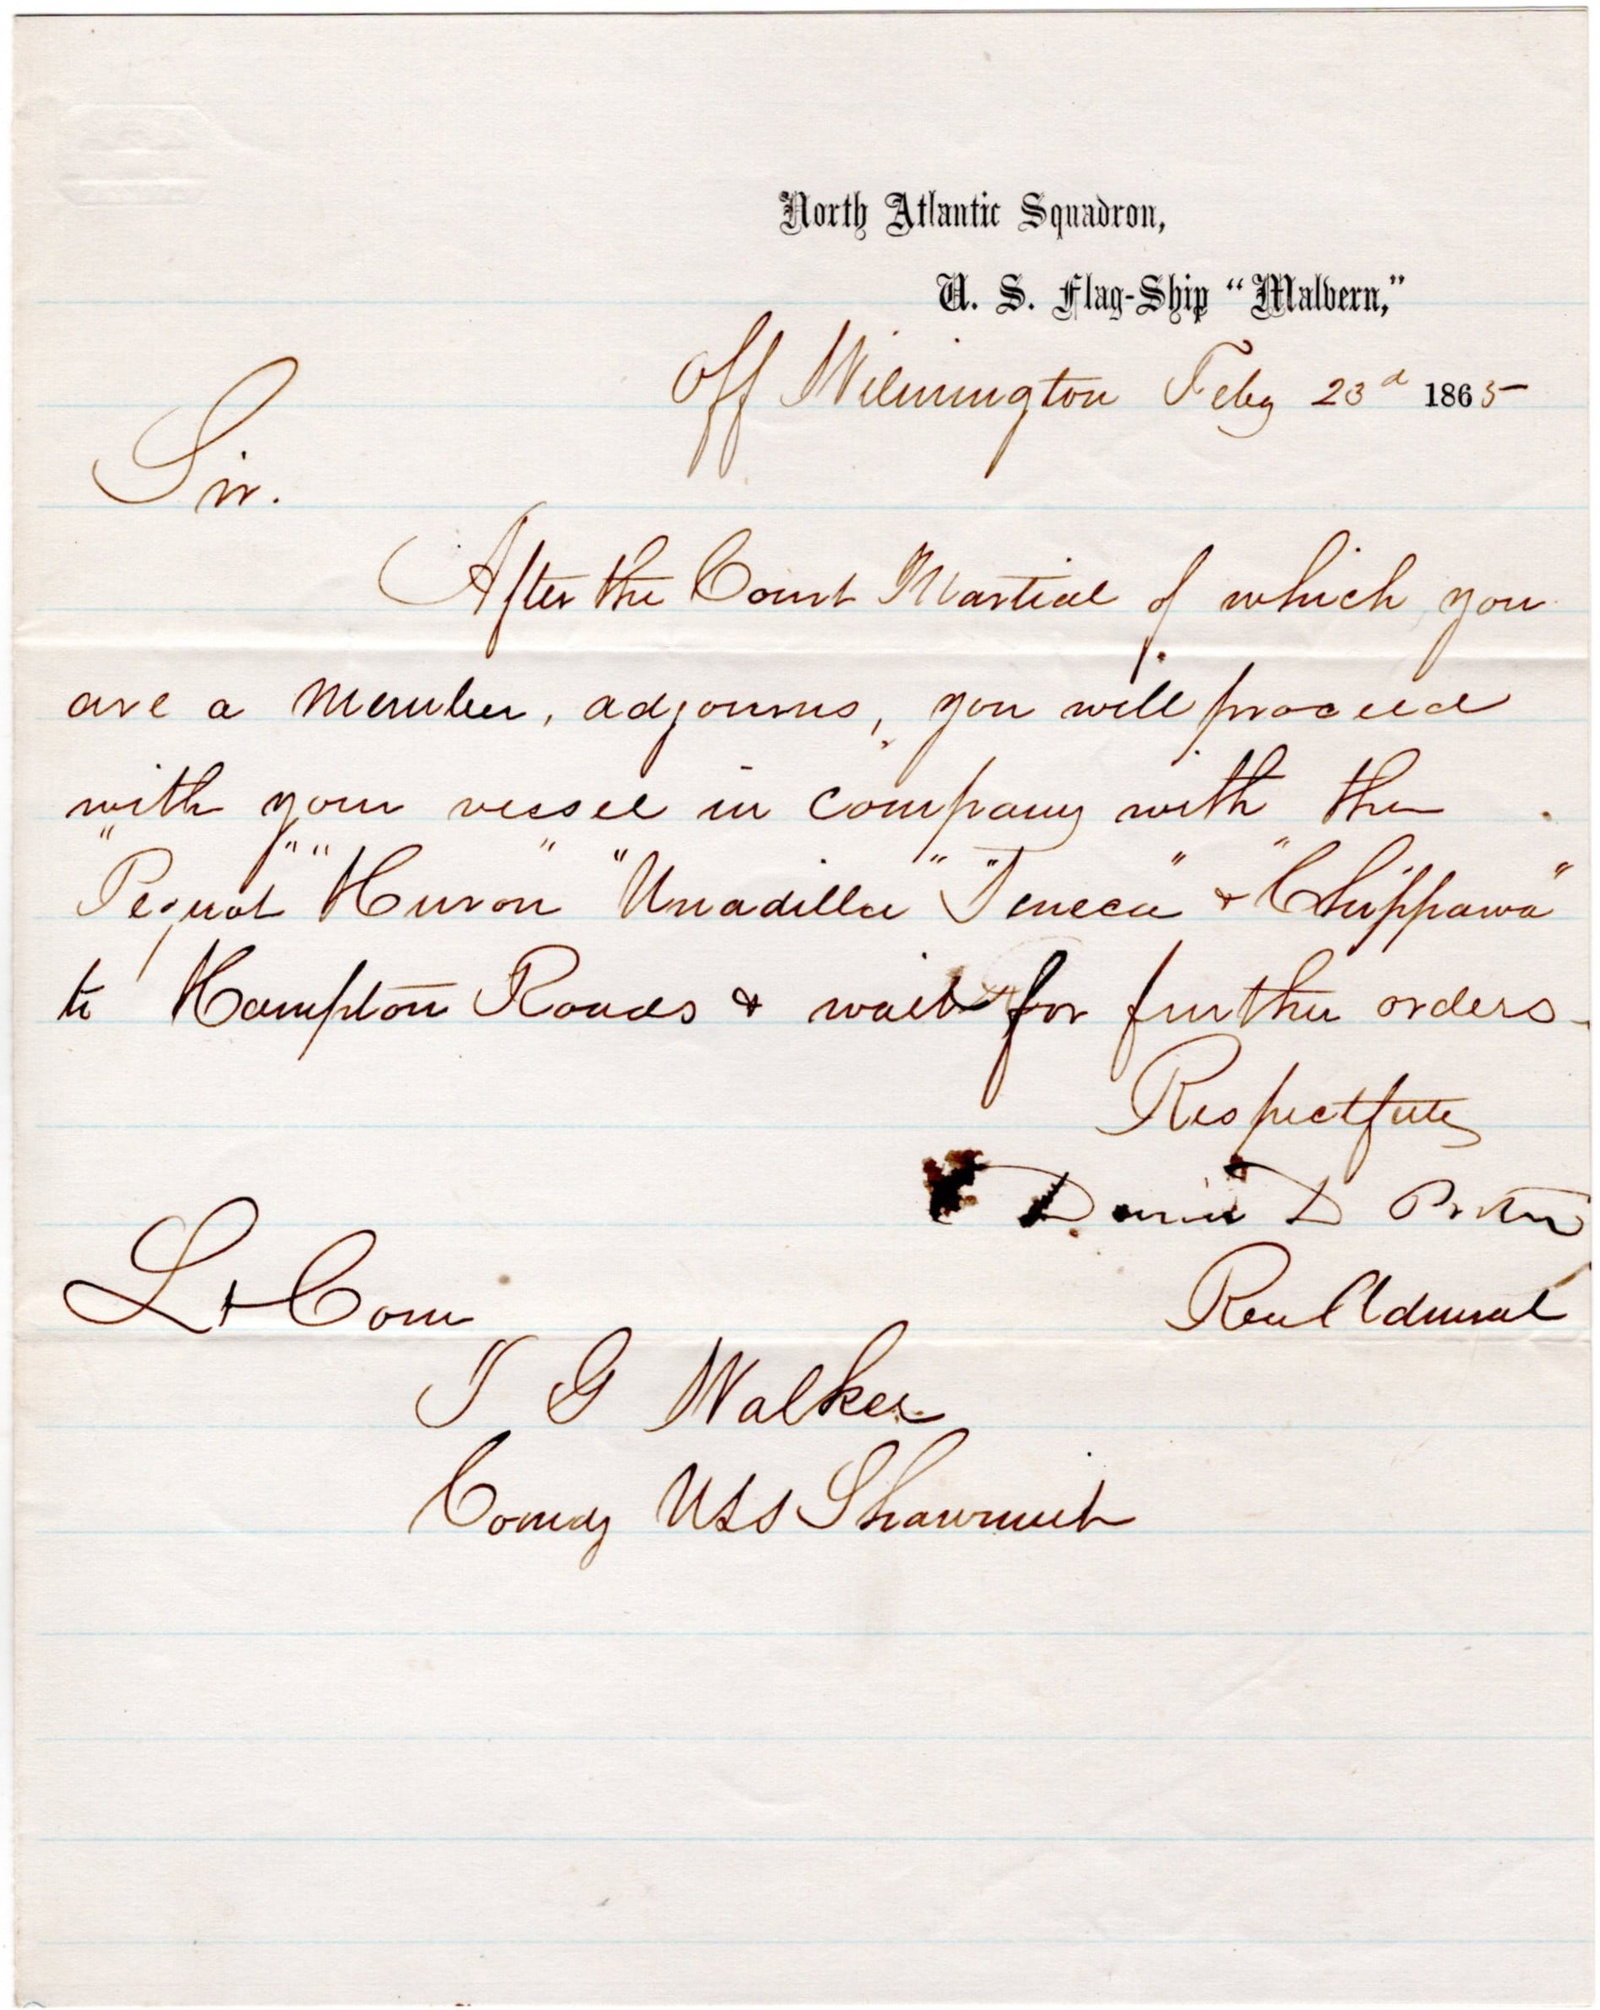 North Atlantic Squadron,
U. S. Flag-Ship "Malvern,"
Off Wilmington Feby 23d 1865
Sir.
After the Court Martial of which you
are a member, adjourns, you will proceed
with your vessel in company with the
"Pequot" "Huron" "Unadilla" "Seneca" & "Chippawa"
to Hampton Roads & wait for further orders.
Respectfully
David D Porter
Rear Admiral
Lt Com
J G Walker
Comdg USS Shawmut